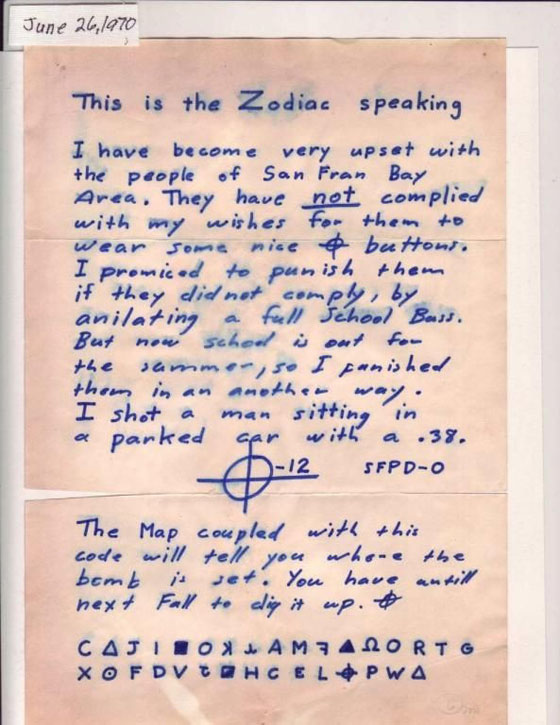 June 26, 1970
This is the Zodiac speaking
I have become very upset with
the people of San Fran Bay
Area. They have not complied
with my wishes for them to
wear some nice ⌖ buttons.
I promiced to punish them
if they did not comply, by
anilating a full School Buss.
But now school is out for
the summer, so I punished
them in an another way.
I shot a man sitting in
a parked car with a .38.
⌖-12 SFPD-0
The Map coupled with this
code will tell you where the
bomb is set. You have untill
next Fall to dig it up. ⌖
C Δ J I ■ O ꓘ ⅄ A M ꟻ ▲ Ω O R T G
X ⊙ F D V Ʇ ■ H C E L ⌖ P W Δ